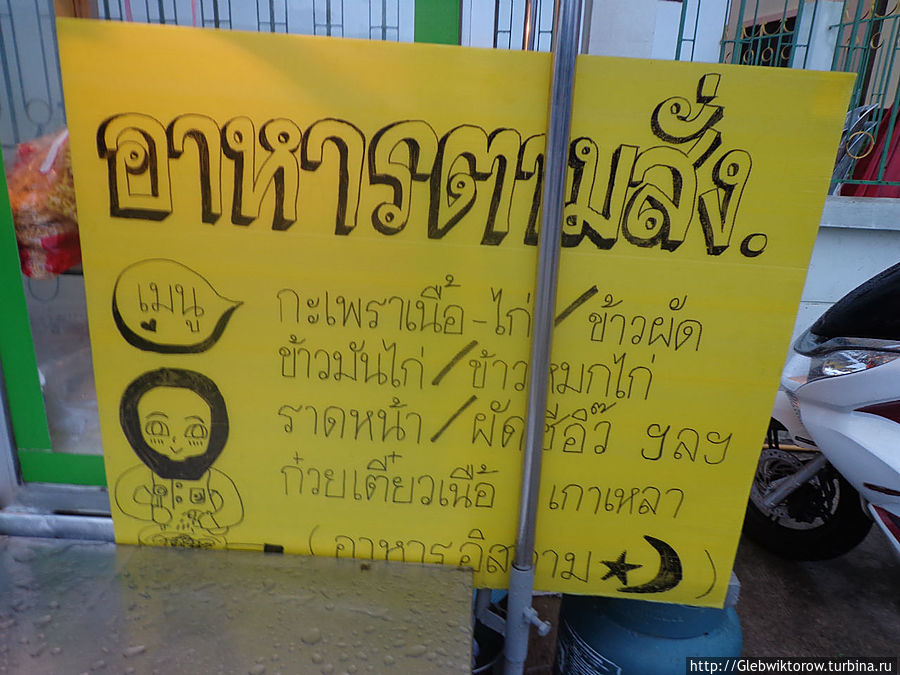 อาหารตามสั่ง.
เมนู
กะเพราเนื้อ-ไก่/ข้าวผัด
ข้าวมันไก่/ข้าวหมกไก่
ราดหน้า/ผัดซีอิ๊ว ฯลฯ
ก๋วยเตี๋ยวเนื้อ เกาเหลา
(อาหารอิสลาม)
http://Glebwiktorow.turbina.ru